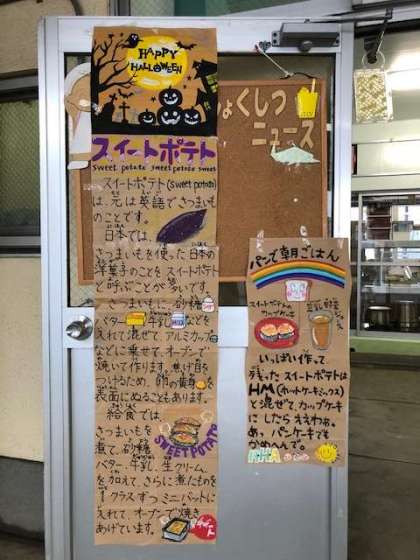 HAPPY
HALLOWEEN
スイートポテト
sweet potato sweet potato sweet
スイートポテト(sweet potato)
は、元は英語でさつまいも
のことです。
日本では、
さつまいもを使った日本の
洋菓子のことをスイートポテト
と呼ぶことが多いです。
さつまいもに、砂糖
バター 牛乳 などを
入れて混ぜて、アルミカップ
などに乗せて、オーブンで
焼いて作ります。焦げ目を
つけるため、卵の黄身を
表面にぬることもあります。
給食では、
さつまいもを
煮て、砂糖
バター、牛乳、生クリーム、
を加えて、さらに煮たものを
1クラスずつミニバットに
入れて、オーブンで焼き
あげています。
SWEET POTATO
しょくしつ
ニュース
パンで朝ごはん
スイートポテトの
カップケーキ
豆乳野菜
ジュース
いっぱい作って
残ったスイートポテトは
HM(ホットケーキミックス)
と混ぜて、カップケーキ
にしたらええわぁ。
あ、パンケーキでも
かめへんで。